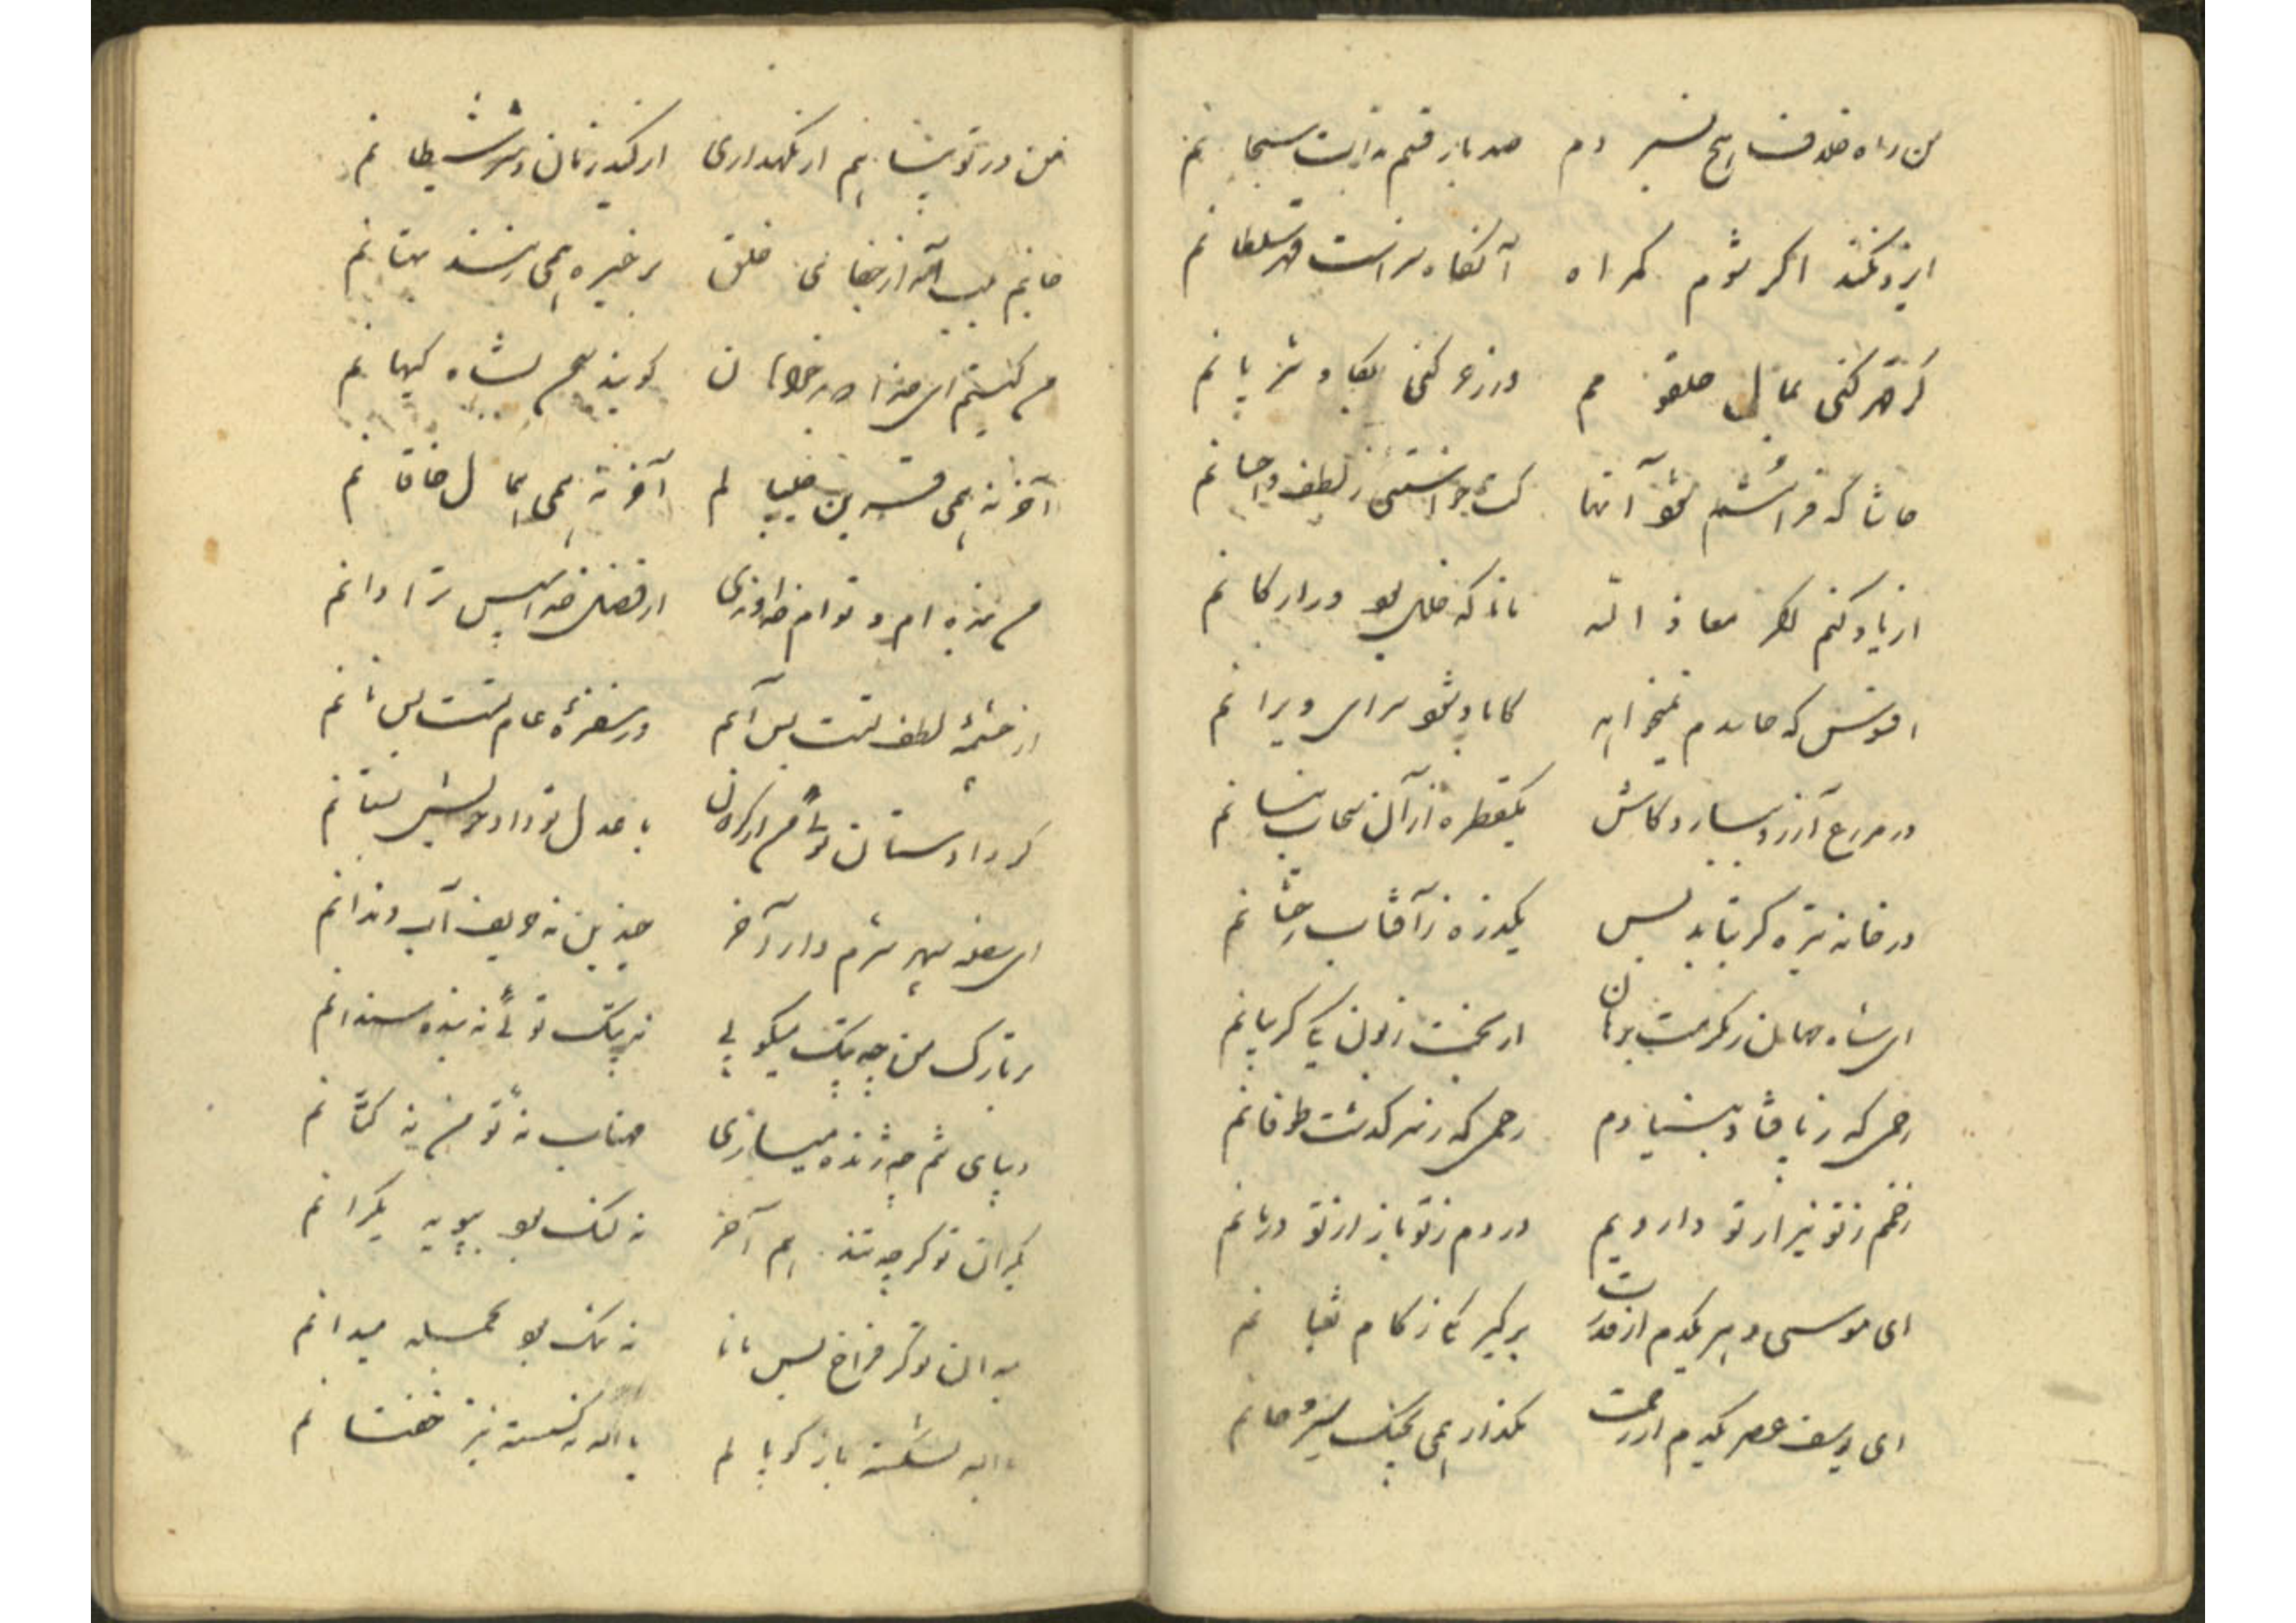 من راه خلاف هیچ نسپردم صد بار قسم بذات سبحانم
ایزد نکند اگر شوم گمراه آنگاه سزاست قهر سلطانم
گر قهر کنی بمال حلقومم ور زجر کنی بکاو شریانم
حاشا که فرامشم شود آنها
از یاد کنم مگر معاذ الله ناید که خلل بود در ارکانم
افسوس که حاسدم نمیخواهد کاباد شود سرای ویرانم
در مزرع آرزو بسارد کاش یکقطره از آن سحاب نیسانم
در خانه تیره گر بتابد بس یکذره ز آفتاب رخشانم
ای شاه جهان ز مکرمت برهان از بخت زبون یکی گریبانم
رحمی که ز پا فتاد بنیادم رحمی که ز سر گذشت طوفانم
زخم ز تو نیز از تو دارویم دردم ز تو باز از تو درمانم
ای موسی دهر یکدم از قدرت برگیر یکی ز کام ثعبانم
ای یوسف عصر یکدم از رحمت مگذار همی بچنگ
من در تو پناهم ار نگهداری از کید زنان و شر شیطانم
خانم بیاله از خطای خلق بر خیره همی زنند بهتانم
من کیستم ای خدا که بدخواهان گویند بحق شاه کیهانم
آخر نه همی قرین آخر نه همی همال خاقانم
من بنده ام و توام خداوندی از فضل خدا سپس ترا دانم
از چشمه لطف تست بس آبم در سفره عام تست بس نانم
گر داد ستان توئی من از گردون با عدل تو داد خویش بستانم
ای سفله سپهر شرم دار آخر چندین نه حریف آب دندانم
بر تارک من چه پتک میکوبی نه پتک توئی نه بنده سندانم
دیبای تنم چه ژنده میسازی مهتاب نه تو من نه کتانم
یکران تو گر چه تند هم آخر نه لنگ بود بپویه یکرانم
میدان تو گر فراخ بس مانا نه تنگ بود بحمله میدانم
نا شکسته باز کوپالم یا نه گسسته نیز خفتانم